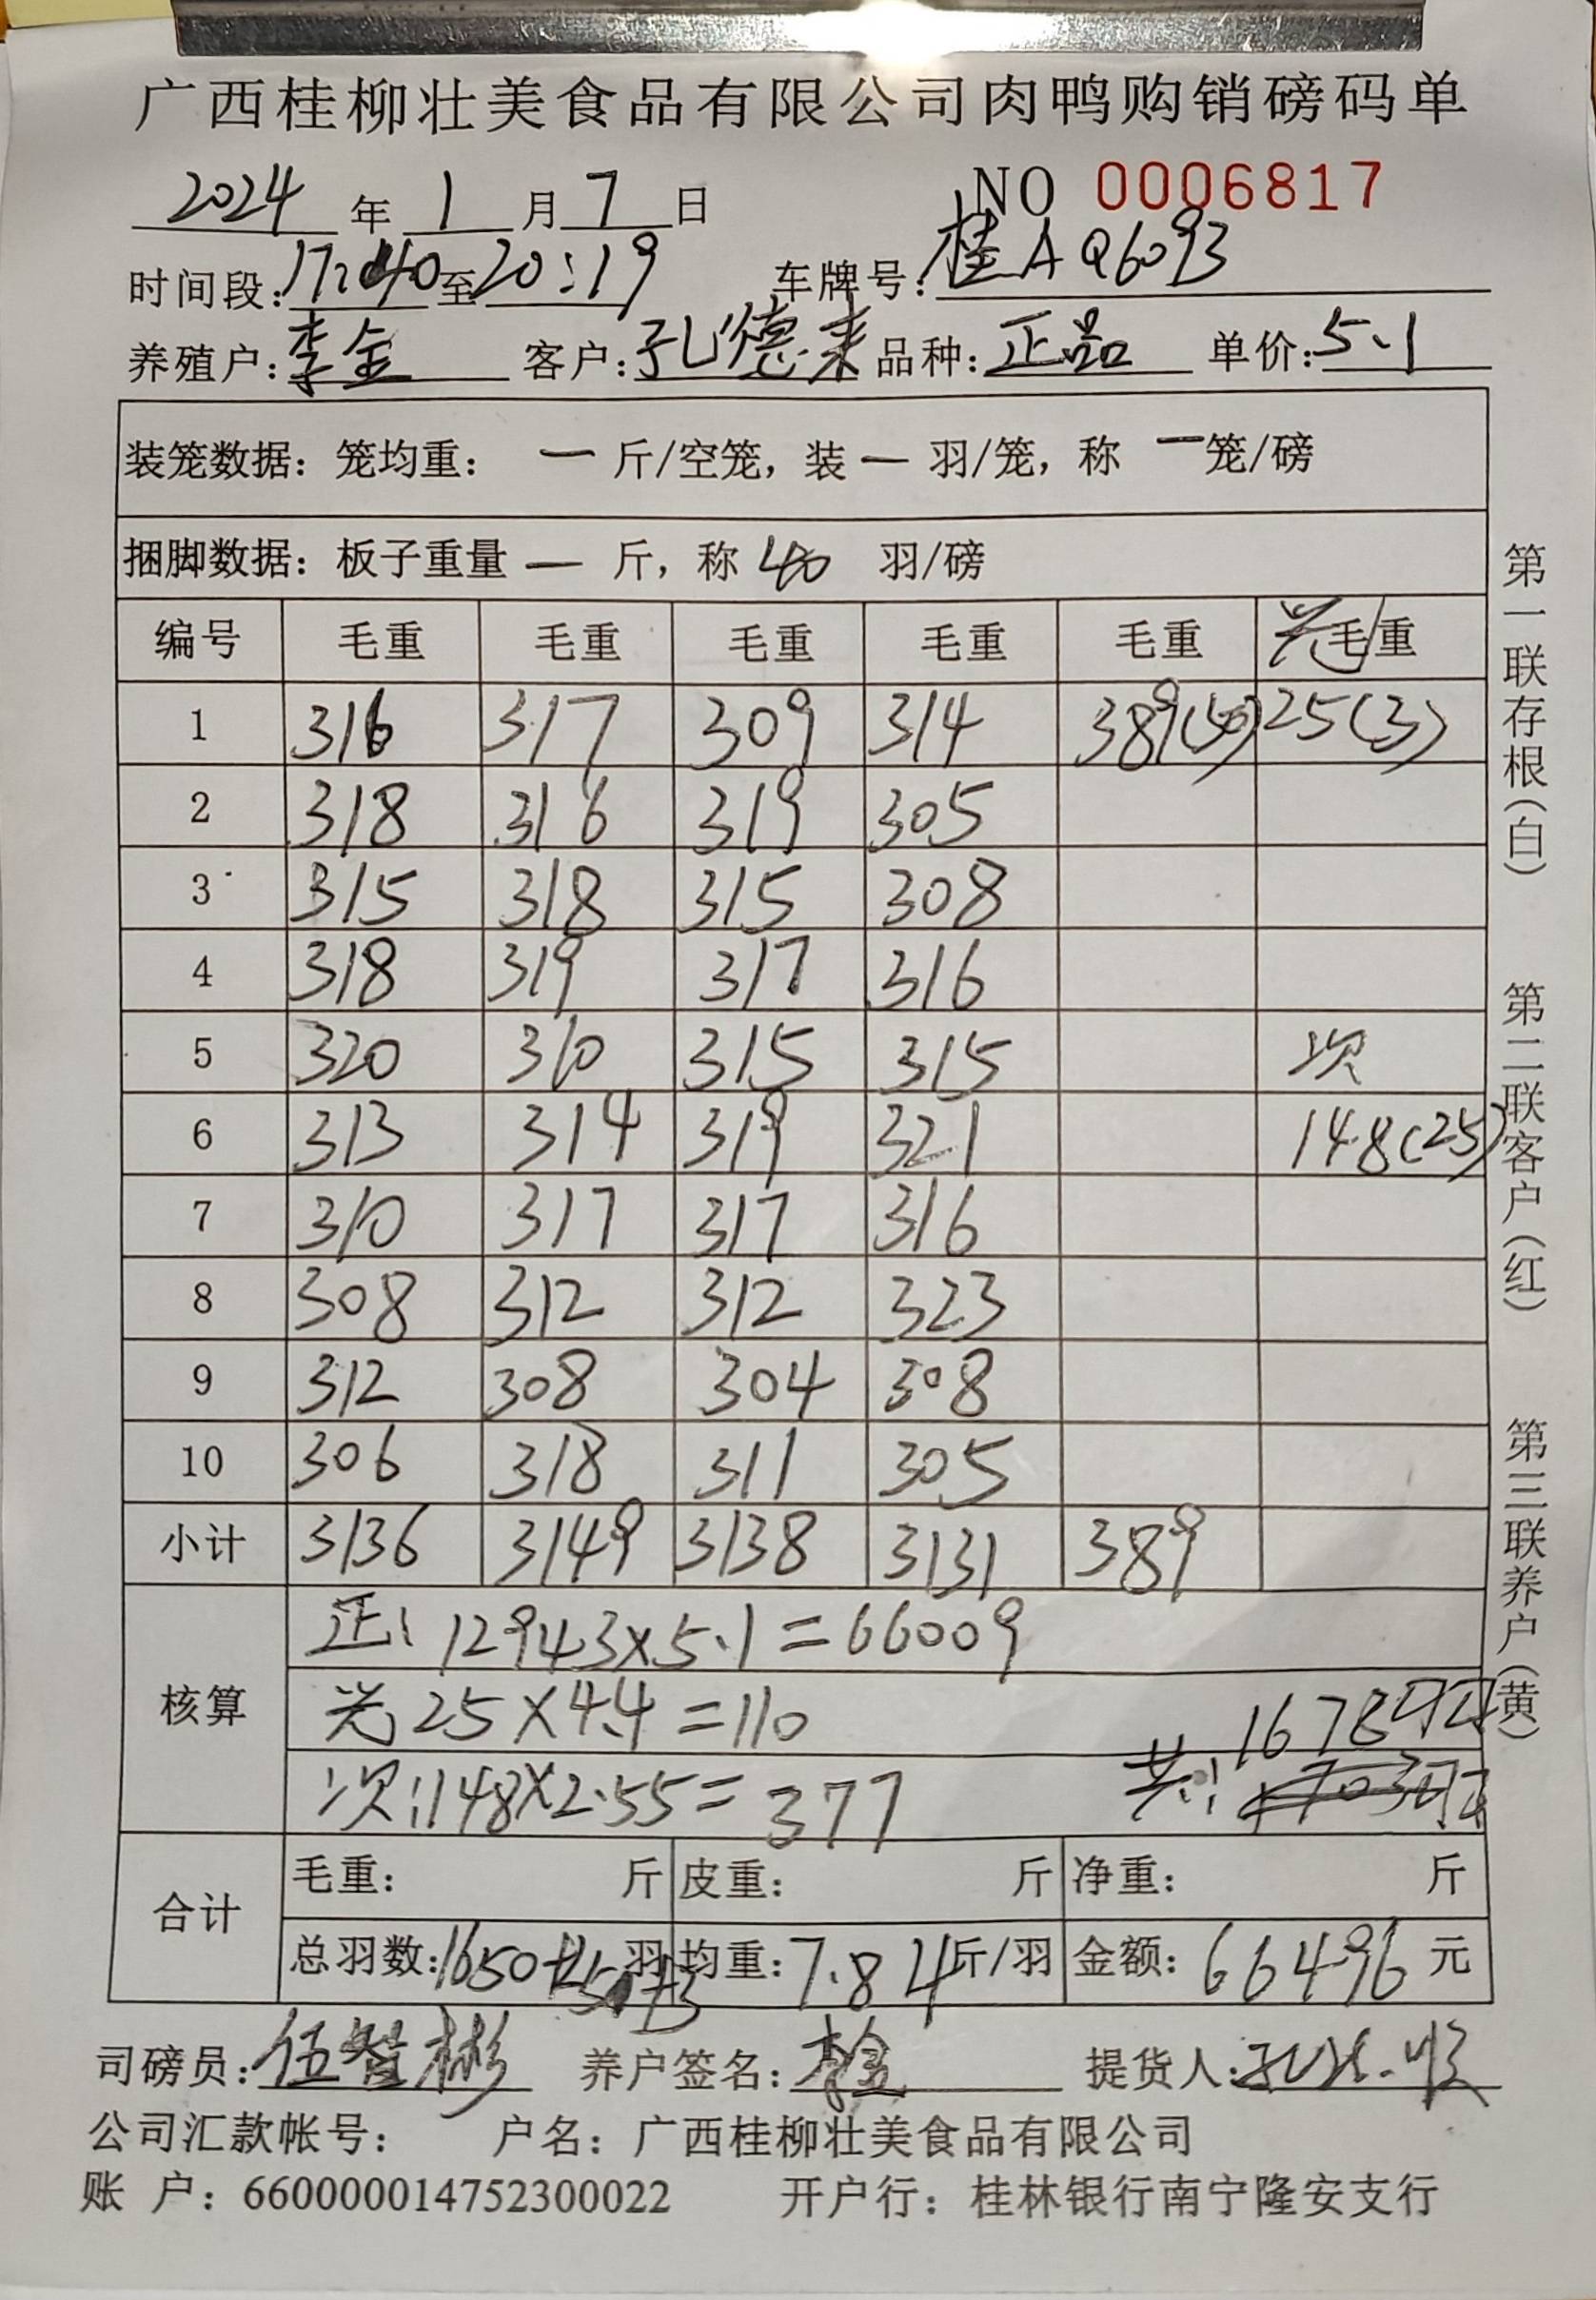 广西桂柳壮美食品有限公司肉鸭购销磅码单
2024 年 1 月 7 日 NO 0006817
时间段:17:40 至 20:19 车牌号:桂AQ6093
养殖户:李金 客户:孔德来 品种:正品 单价:5.1
装笼数据:笼均重: 一 斤/空笼,装 一 羽/笼,称 一 笼/磅
捆脚数据:板子重量 一 斤,称 40 羽/磅
编号 毛重 毛重 毛重 毛重 毛重 光毛重
1 316 317 309 314 389(50) 25(3)
2 318 316 319 305
3 315 318 315 308
4 318 319 317 316
5 320 310 315 315 次
6 313 314 319 321 148(25)
7 310 317 317 316
8 308 312 312 323
9 312 308 304 308
10 306 318 311 305
小计 3136 3149 3138 3131 389
核算
正: 12943×5.1=66009
光 25×4.4=110 1678羽
次:148×2.55=377 共:
合计
毛重: 斤 皮重: 斤 净重: 斤
总羽数:1650+25+3 羽 均重:7.84 斤/羽 金额:66496 元
司磅员:伍智彬 养户签名:李金 提货人:
公司汇款帐号: 户名:广西桂柳壮美食品有限公司
账 户:660000014752300022 开户行:桂林银行南宁隆安支行
第一联存根(白) 第二联客户(红) 第三联养户(黄)